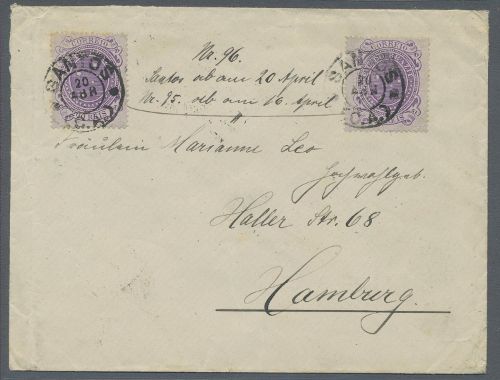 CORREIO
SANTOS
20
ABR
CORREIO
SANTOS
20
Nr. 96.
Santos ab am 20 April
Nr. 95. ab am 16. April
Fräulein Marianne Leo
Hochwohlgeb.
Haller Str. 68
Hamburg.